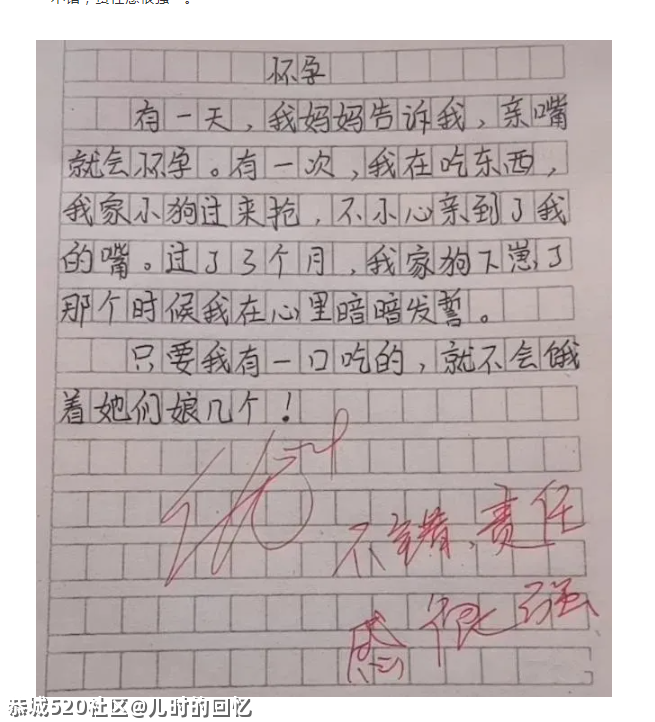 不错，责任感很强”。
怀孕
有一天，我妈妈告诉我，亲嘴
就会怀孕。有一次，我在吃东西，
我家小狗过来抢，不小心亲到了我
的嘴。过了3个月，我家狗下崽了
那个时候我在心里暗暗发誓。
只要我有一口吃的，就不会饿
着她们娘几个！
不错，责任
感很强
恭城520社区@儿时的回忆